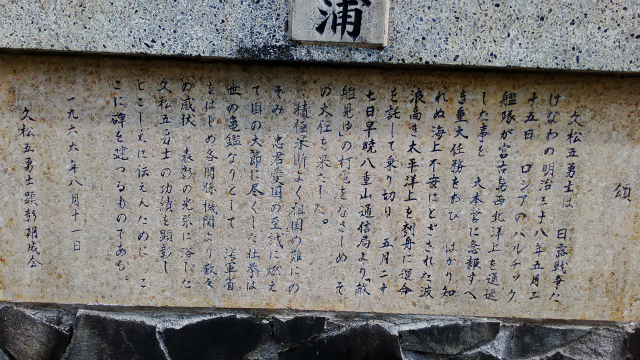 浦
頌
久松五勇士は 日露戦争た
けなわの明治三十八年五月二
十五日 ロシアのバルチック
艦隊が宮古島西北洋上を通過
した事を 大本営に急報すべ
き重大任務をおび はかり知
れぬ海上不安にとざされた波
浪高き太平洋上を刳舟に運命
を託して乗り切り 五月二十
七日早暁八重山通信局より敵
艦見ゆの打電をなさしめ そ
の大任を果たした。
積極果断よく祖国の難にの
ぞみ 忠君愛国の至誠に燃え
て国の大節に尽くした壮挙は
世の亀鑑なりとして 海軍省
をはじめ各関係機関より数々
の感状 表彰の光栄に浴した
久松五勇士の功績を顕彰し
とこしえに伝えんために こ
こに碑を建つるものである。
一九六六年八月十一日
久松五勇士顕彰期成会